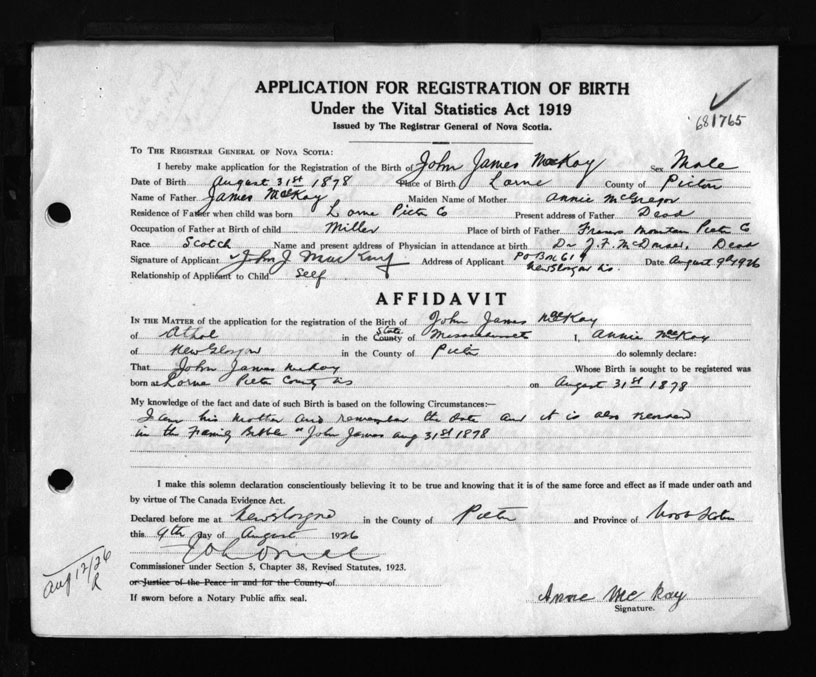 APPLICATION FOR REGISTRATION OF BIRTH
Under the Vital Statistics Act 1919
Issued by The Registrar General of Nova Scotia.
681765
To The Registrar General of Nova Scotia:
I hereby make application for the Registration of the Birth of John James McKay Sex Male
Date of Birth August 31st 1878 Place of Birth Lorne County of Pictou
Name of Father James McKay Maiden Name of Mother Annie McGregor
Residence of Father when child was born Lorne Pictou Co Present address of Father Dead
Occupation of Father at Birth of child Miller Place of birth of Father Mountain Pictou Co
Race Scotch Name and present address of Physician in attendance at birth Dr J.F. Dead
Signature of Applicant John J Address of Applicant PO Box 619 Date August 9th 1926
New Glasgow
Relationship of Applicant to Child Self
AFFIDAVIT
In the Matter of the application for the registration of the Birth of John James McKay
of Athol in the County State of Massachusetts I, Annie McKay
of New Glasgow in the County of Pictou do solemnly declare:
That John James McKay Whose Birth is sought to be registered was
born at Lorne Pictou County NS on August 31st 1878
My knowledge of the fact and date of such Birth is based on the following Circumstances:—
I am his mother and remember the date and it is also recorded
in the Family Bible "John James Aug 31st 1878
I make this solemn declaration conscientiously believing it to be true and knowing that it is of the same force and effect as if made under oath and
by virtue of The Canada Evidence Act.
Declared before me at New Glasgow in the County of Pictou and Province of Nova Scotia
this 9th day of August 1926
Commissioner under Section 5, Chapter 38, Revised Statutes, 1923.
or Justice of the Peace in and for the County of
If sworn before a Notary Public affix seal.
Aug 12/26
R
Annie McKay
Signature.